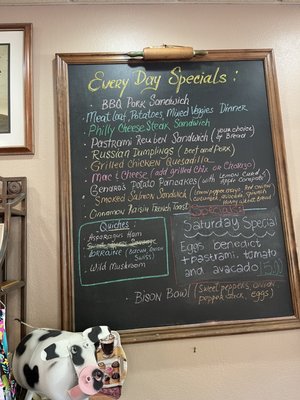 Every Day Specials:
• BBQ Pork Sandwich
• Meat loaf, Potatoes, Mixed Veggies Dinner
• Philly Cheese Steak Sandwich
• Pastrami Reuben Sandwich (your choice of Bread)
• Russian Dumplings (Beef and Pork)
• Grilled Chicken Quesadilla
• Mac & Cheese (add grilled Chix or Chorizo)
• Potato Pancakes (with Lemon Cured
• Smoked Salmon Sandwich
• Cinnamon Raisin French Toast
Quiches:
• Asparagus Ham
• Lorraine (Bacon, Onion, Swiss)
• Wild Mushroom
Specials
Saturday Special
Eggs benedict
+ pastrami, tomato
and avocado
• Bison Bowl (Sweet peppers, onion, pepper Jack, eggs)